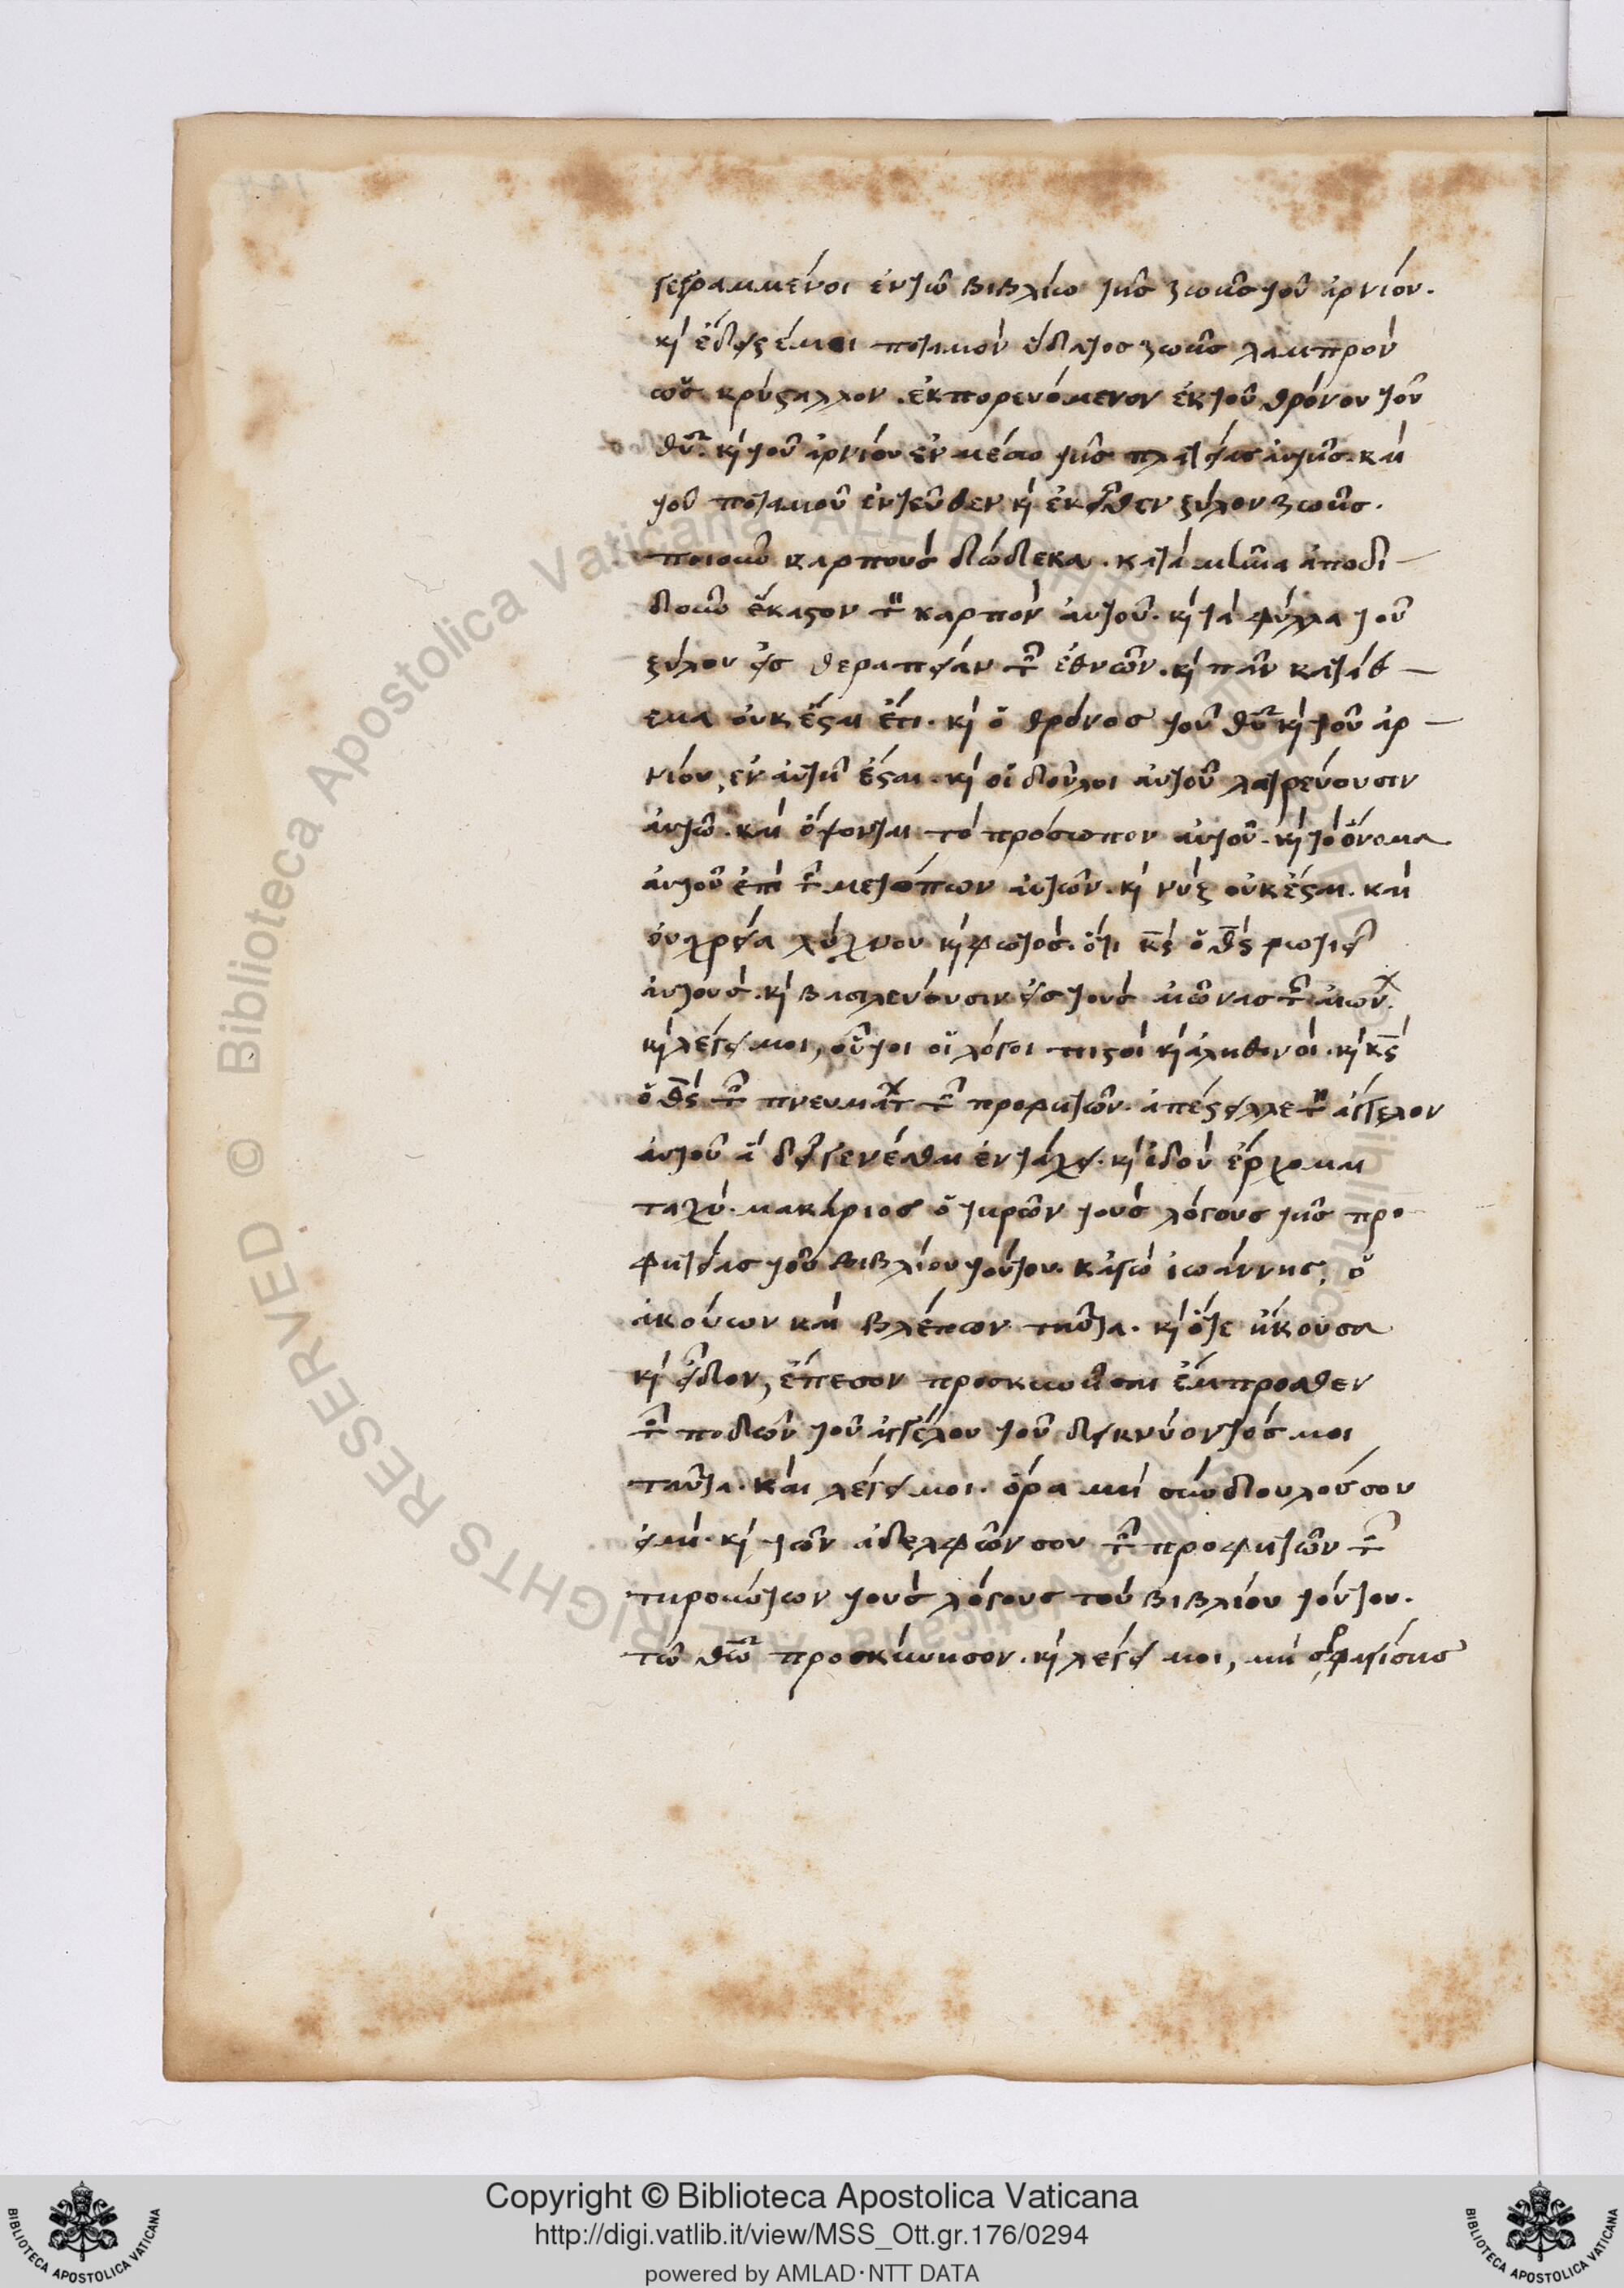 γεγραμμένοι ἐν τῶ βιβλίω τῆς ζωῆς τοῦ ἀρνίου.
κ̀ ἔδειξέ μοι ποταμὸν ὕδατος ζωῆς λαμπρὸν
ὡς κρύσταλλον. ἐκπορευόμενον ἐκ τοῦ θρόνου τοῦ
θυ̅. κ̀ τοῦ ἀρνίου ἐν μέσω τῆς πλατείας αὐτῆς. καὶ
τοῦ ποταμοῦ ἐντεῦθεν κ̀ ἐκεῖθεν ξύλον ζωῆς.
ποιοῦν καρποὺς δώδεκα. κατὰ μῆνα ἀποδι-
δοῦν ἕκαστον τὸν καρπὸν αὐτοῦ. κ̀ τὰ φύλλα τοῦ
ξύλου εἰς θεραπείαν τῶν ἐθνῶν. κ̀ πᾶν κατάθ-
εμα οὐκ ἔσται ἔτι. κ̀ ὁ θρόνος τοῦ θυ̅ κ̀ τοῦ ἀρ-
νίου, ἐν αὐτῆ ἔσται. κ̀ οἱ δοῦλοι αὐτοῦ λατρεύουσιν
αὐτῶ. καὶ ὄψονται τὸ πρόσωπον αὐτοῦ. κ̀ τὸ ὄνομα
αὐτοῦ ἐπὶ τῶν μετώπων αὐτῶν. κ̀ νὺξ οὐκ ἔσται. καὶ
οὐ χρεία λύχνου κ̀ φωτός. ὅτι κς̅ ὁ θς̅ φωτιεῖ
αὐτούς. κ̀ βασιλεύουσιν εἰς τοὺς αἰῶνας τῶν αἰώνων.
κ̀ λέγει μοι, οὗτοι οἱ λόγοι πιστοὶ κ̀ ἀληθινοί. κ̀ κς̅
ὁ θς̅ τῶν πνευμάτων τῶν προφητῶν. ἀπέστειλλε τὸν ἄγγελον
αὐτοῦ ἃ δεῖ γενέσθαι ἐν τάχει. κ̀ ἰδοὺ ἔρχομαι
ταχύ. μακάριος ὁ τηρῶν τοὺς λόγους τῆς προ
φητείας τοῦ βιβλίου τούτου. κἀγὼ ἰωάννης, ὁ
ἀκούων καὶ βλέπων ταῦτα. κ̀ ὅτε ἤκουσα
κ̀ εἶδον, ἔπεσον προσκυνῆσαι ἔμπροσθεν
τῶν ποδῶν τοῦ ἀγγέλου τοῦ δεικνύοντός μοι
ταῦτα. καὶ λέγει μοι. ὅρα μὴ σύνδουλός σου
εἰμὶ. κ̀ τῶν ἀδελφῶν σου τῶν προφητῶν τῶν
τηρούντων τοὺς λόγους τοῦ βιβλίου τούτου.
τῶ θω̅ προσκύνησον. κ̀ λέγει μοι, μὴ σφραγίσης
Copyright © Biblioteca Apostolica Vaticana
http://digi.vatlib.it/view/MSS_Ott.gr.176/0294
powered by AMLAD·NTT DATA